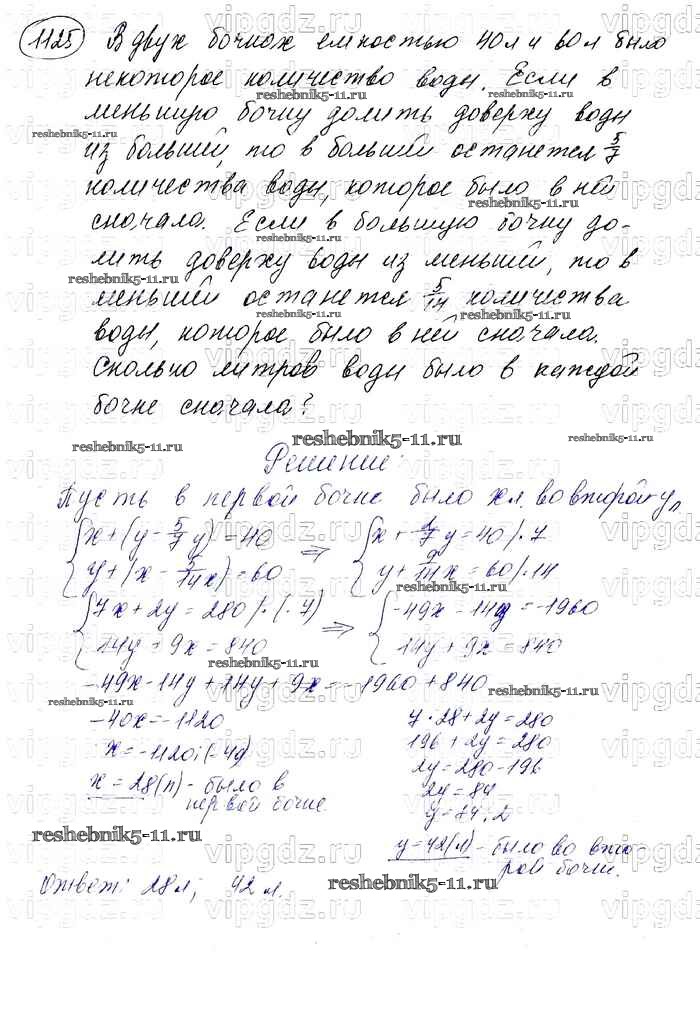 1125 В двух бочках емкостью 40л и 60л было
некоторое количество воды. Если в
меньшую бочку долить доверху воды
из большей, то в большей останется 5/7
количества воды, которое было в ней
сначала. Если в большую бочку до-
лить доверху воды из меньшей, то в
меньшей останется 5/14 количества
воды, которое было в ней сначала.
Сколько литров воды было в каждой
бочке сначала?
Решение
Пусть в первой бочке было x л. во второй - y л
{ x + (y - 5/7 y) = 40 => { x + 2/7 y = 40 /· 7
{ y + (x - 5/14 x) = 60 { y + 9/14 x = 60 /· 14
{ 7x + 2y = 280 /· (-7) => { -49x - 14y = -1960
{ 14y + 9x = 840 { 14y + 9x = 840
-49x - 14y + 14y + 9x = -1960 + 840
-40x = -1120
x = -1120 : (-40)
x = 28 (л) - было в
первой бочке
7 · 28 + 2y = 280
196 + 2y = 280
2y = 280 - 196
2y = 84
y = 84 : 2
y = 42 (л) - было во вто-
рой бочке.
Ответ: 28 л; 42 л.
vipgdz.ru
reshebnik5-11.ru